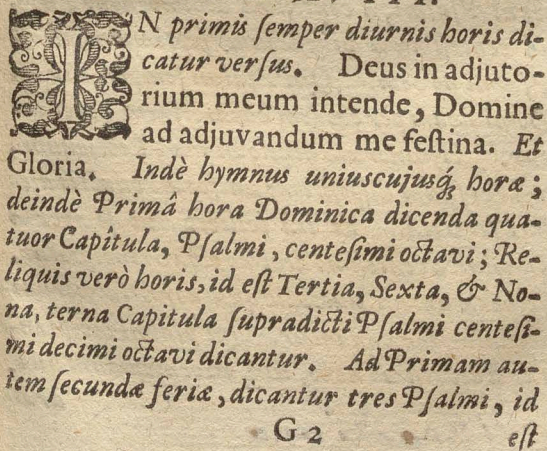 IN primis semper diurnis horis di-
catur versus. Deus in adjuto-
rium meum intende, Domine
ad adjuvandum me festina. Et
Gloria. Indè hymnus uniuscujusq́; horæ;
deindè Primâ hora Dominica dicenda qua-
tuor Capitula, Psalmi, centesimi octavi; Re-
liquis verò horis, id est Tertia, Sexta, & No-
na, terna Capitula supradicti Psalmi centesi-
mi decimi octavi dicantur. Ad Primam au-
tem secundæ feriæ, dicantur tres Psalmi, id
G 2 est